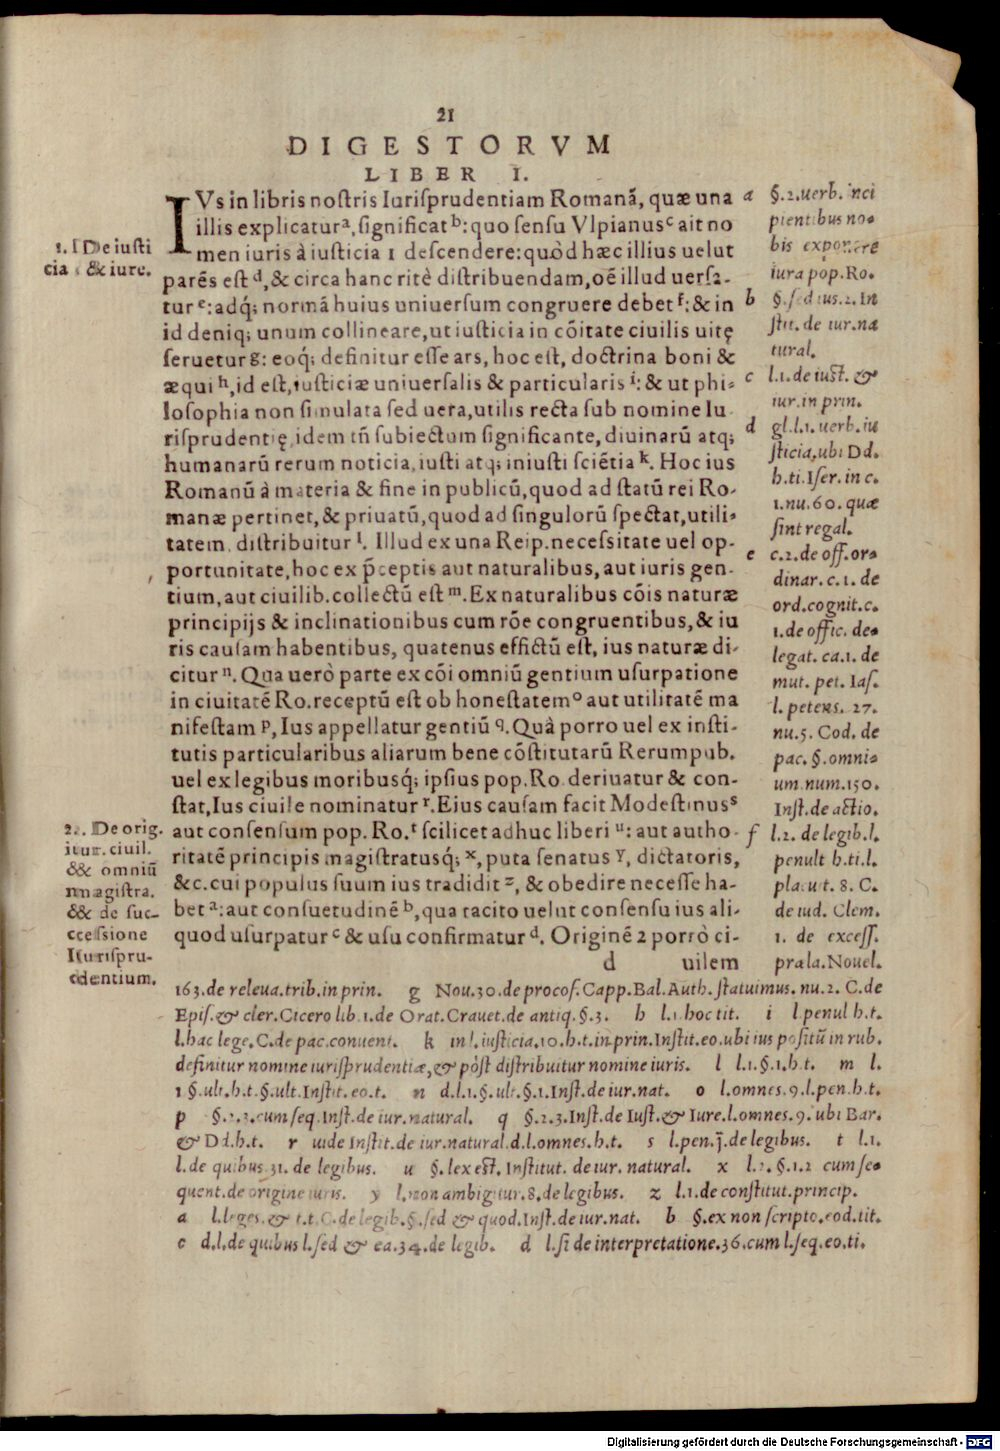 21
DIGESTORVM
LIBER I.
IVs in libris nostris Iurisprudentiam Romanã, quæ una
illis explicaturᵃ, significatᵇ: quo sensu Vlpianusᶜ ait no
men iuris à iusticia 1 descendere: quòd hæc illius uelut
parẽs estᵈ, & circa hanc ritè distribuendam, oẽ illud uersa-
turᵉ: adq́; normã huius uniuersum congruere debetᶠ: & in
id deniq; unum collineare, ut iusticia in cõitate ciuilis uitę
serueturᵍ: eoq́; definitur esse ars, hoc est, doctrina boni &
æquiʰ, id est, iusticiæ uniuersalis & particularisⁱ: & ut phi-
losophia non simulata sed uera, utilis recta sub nomine Iu
risprudentię, idem tñ subiectum significante, diuinarũ atq;
humanarũ rerum noticia, iusti atq; iniusti sciẽtiaᵏ. Hoc ius
Romanũ à materia & fine in publicũ, quod ad statũ rei Ro-
manæ pertinet, & priuatũ, quod ad singulorũ spectat, utili-
tatem distribuiturˡ. Illud ex una Reip. necessitate uel op-
portunitate, hoc ex p̃ceptis aut naturalibus, aut iuris gen-
tium, aut ciuilib. collectũ estᵐ. Ex naturalibus cõis naturæ
principijs & inclinationibus cum rõe congruentibus, & iu
ris causam habentibus, quatenus effictũ est, ius naturæ di-
citurⁿ. Qua uerò parte ex cõi omniũ gentium usurpatione
in ciuitatẽ Ro. receptũ est ob honestatemᵒ aut utilitatẽ ma
nifestamᵖ, Ius appellatur gentiũ ᑫ. Quà porro uel ex insti-
tutis particularibus aliarum bene cõstitutarũ Rerumpub.
uel ex legibus moribusq́; ipsius pop. Ro. deriuatur & con-
stat, Ius ciuile nominaturʳ. Eius causam facit Modestinusˢ
aut consensum pop. Ro.ᵗ scilicet adhuc liberiᵘ: aut autho-
ritatẽ principis magistratusq́;ˣ, puta senatusʸ, dictatoris,
&c. cui populus suum ius tradiditᶻ, & obedire necesse ha-
betᵃ: aut consuetudinẽᵇ, qua tacito uelut consensu ius ali-
quod usurpaturᶜ & usu confirmaturᵈ. Originẽ 2 porrò ci-
d uilem
1. De iusti
cia & iure.
2. De orig.
iur. ciuil.
& omniũ
magistra.
& de suc-
cessione
Iurispru-
dentium.
a §.2. uerb. inci
pientibus no-
bis exponere
iura pop. Ro.
b §. sed ius. 2. In
stit. de iur. na
tural.
c l.1. de iust. &
iur. in prin.
d gl. l.1. uerb. iu
sticia, ubi Dd.
h. ti. Iser. in c.
1. nu. 60. quæ
sint regal.
e c.2. de off. or-
dinar. c. 1. de
ord. cognit. c.
1. de offic. de-
legat. ca. 1. de
mut. pet. Ias.
l. petens. 27.
nu. 5. Cod. de
pac. §. omni-
um. num. 150.
Inst. de actio.
f l.2. de legib. l.
penult h. ti. l.
placuit. 8. C.
de iud. Clem.
1. de excess.
præla. Nouel.
163. de releua. trib. in prin. g Nou. 30. de procos. Capp. Bal. Auth. statuimus. nu. 2. C. de
Epis. & cler. Cicero lib. 1. de Orat. Crauet. de antiq. §. 3. h l.1. hoc tit. i l. penul h. t.
l. hac lege. C. de pac. conuent. k in l. iusticia. 10. h. t. in prin. Instit. eo. ubi ius positũ in rub.
definitur nomine iurisprudentiæ, & pòst distribuitur nomine iuris. l l.1. §.1. h. t. m l.
1 §. ult. h. t. §. ult. Instit. eo. t. n d. l.1. §. ult. §.1. Inst. de iur. nat. o l. omnes. 9. l. pen. h. t.
p §.2.3. cum seq. Inst. de iur. natural. q §.2.3. Inst. de Iust. & Iure. l. omnes. 9. ubi Bar.
& Dd. h. t. r uide Instit. de iur. natural. d. l. omnes. h. t. s l. pen. j̃. de legibus. t l.1.
l. de quibus. 31. de legibus. u §. lex est. Institut. de iur. natural. x l.2. §.1.2 cum se-
quent. de origine iuris. y l. non ambigitur. 8. de legibus. z l.1. de constitut. princip.
a l. leges. & t. t. C. de legib. §. sed & quod. Inst. de iur. nat. b §. ex non scripto. eod. tit.
c d. l. de quibus l. sed & ea. 34. de legib. d l. si de interpretatione. 36. cum l. seq. eo. ti.
Digitalisierung gefördert durch die Deutsche Forschungsgemeinschaft - DFG